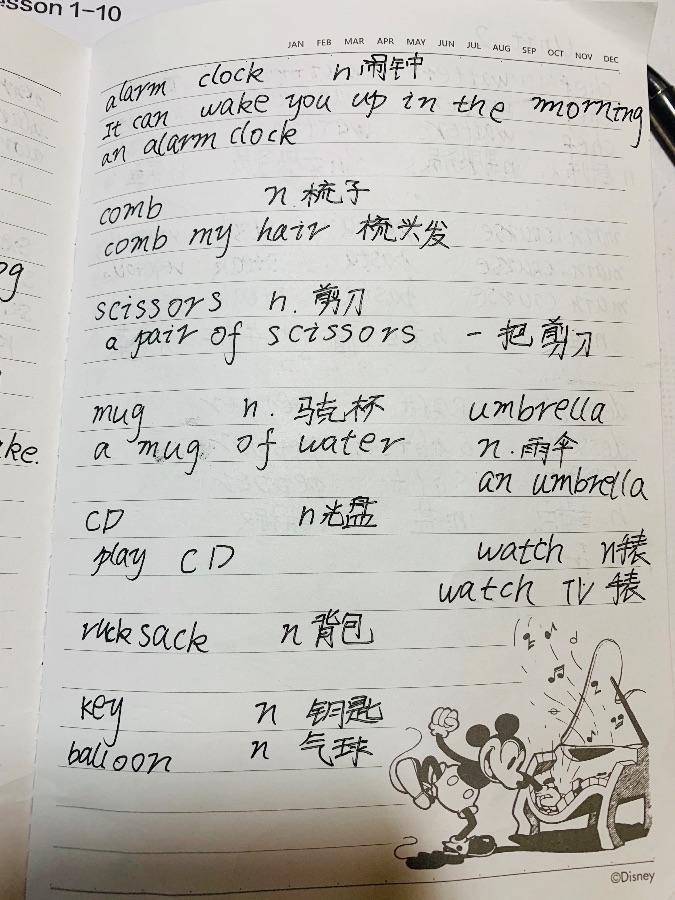 esson 1-10
JAN FEB MAR APR MAY JUN JUL AUG SEP OCT NOV DEC
alarm clock n 闹钟
It can wake you up in the morning
an alarm clock
comb n 梳子
comb my hair 梳头发
scissors n. 剪刀
a pair of scissors 一把剪刀
mug n. 马克杯 umbrella
a mug of water n. 雨伞
an umbrella
CD n 光盘
play CD watch n 表
watch TV 表
rucksack n 背包
key n 钥匙
balloon n 气球
og
ake.
©Disney